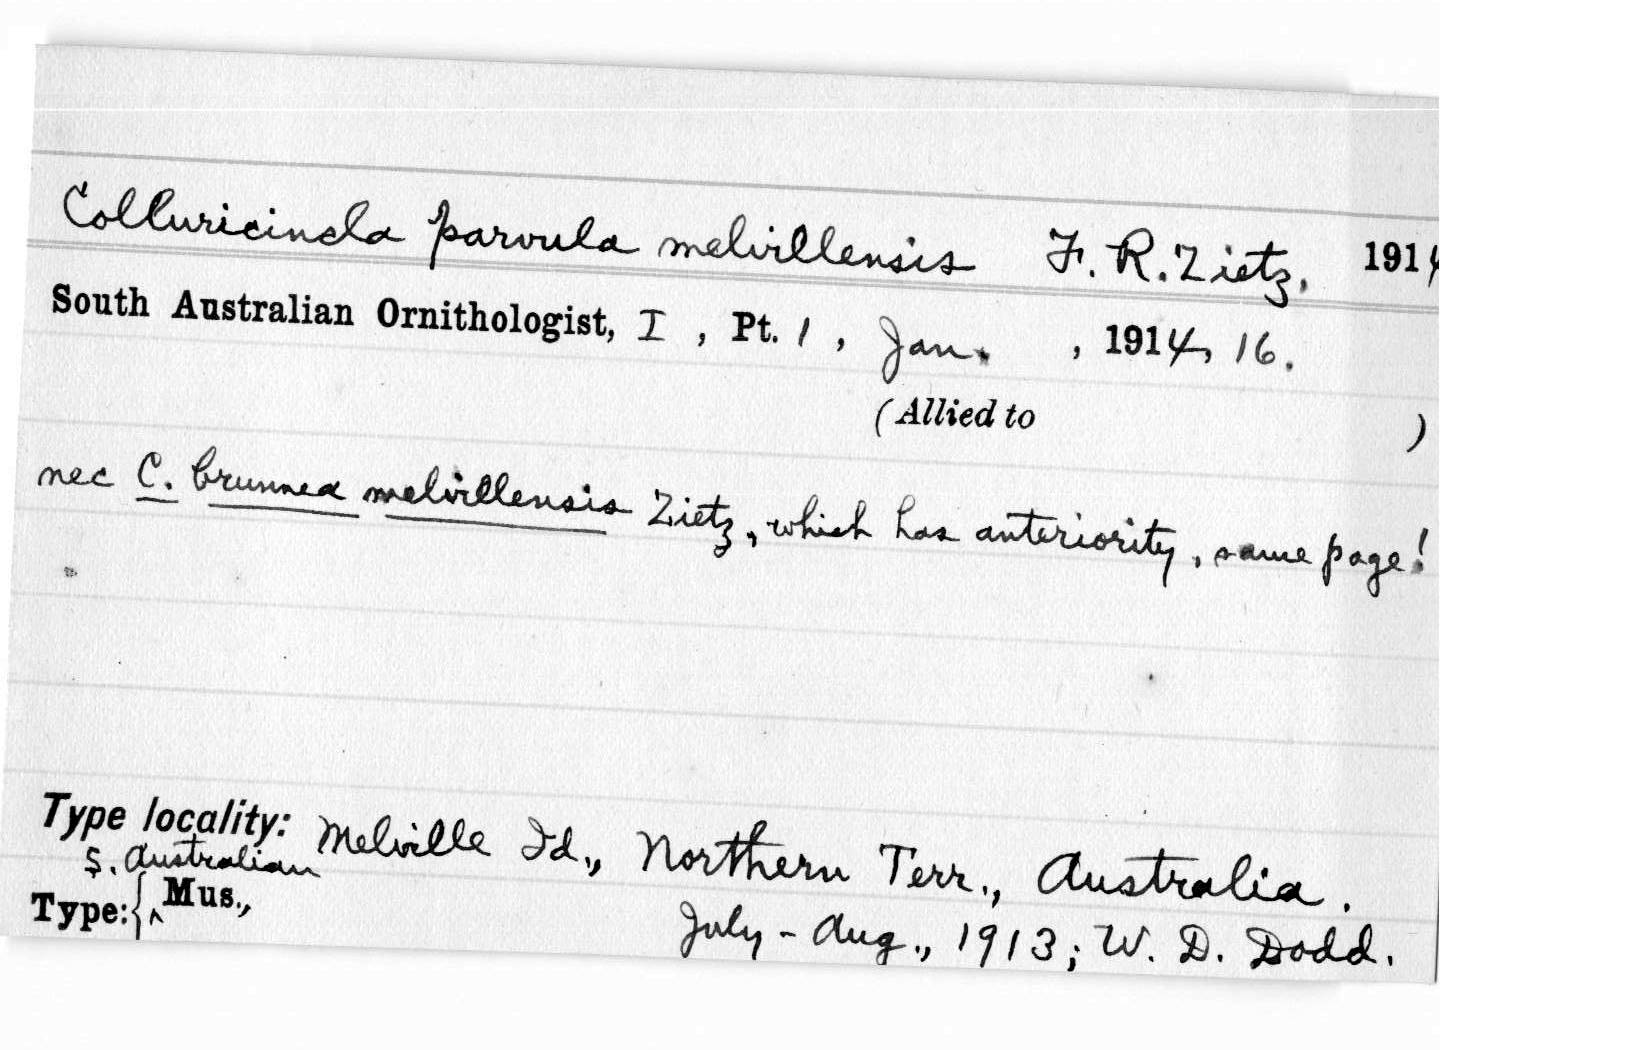 Colluricincla parvula melvillensis F. R. Zietz, 1914
South Australian Ornithologist, I, Pt. 1, Jan., 1914, 16.
(Allied to )
nec C. brunnea melvillensis Zietz, which has anteriority, same page!
Type locality: Melville Id., Northern Terr., Australia.
S. Australian
Type:{^ Mus., July - Aug., 1913; W. D. Dodd.